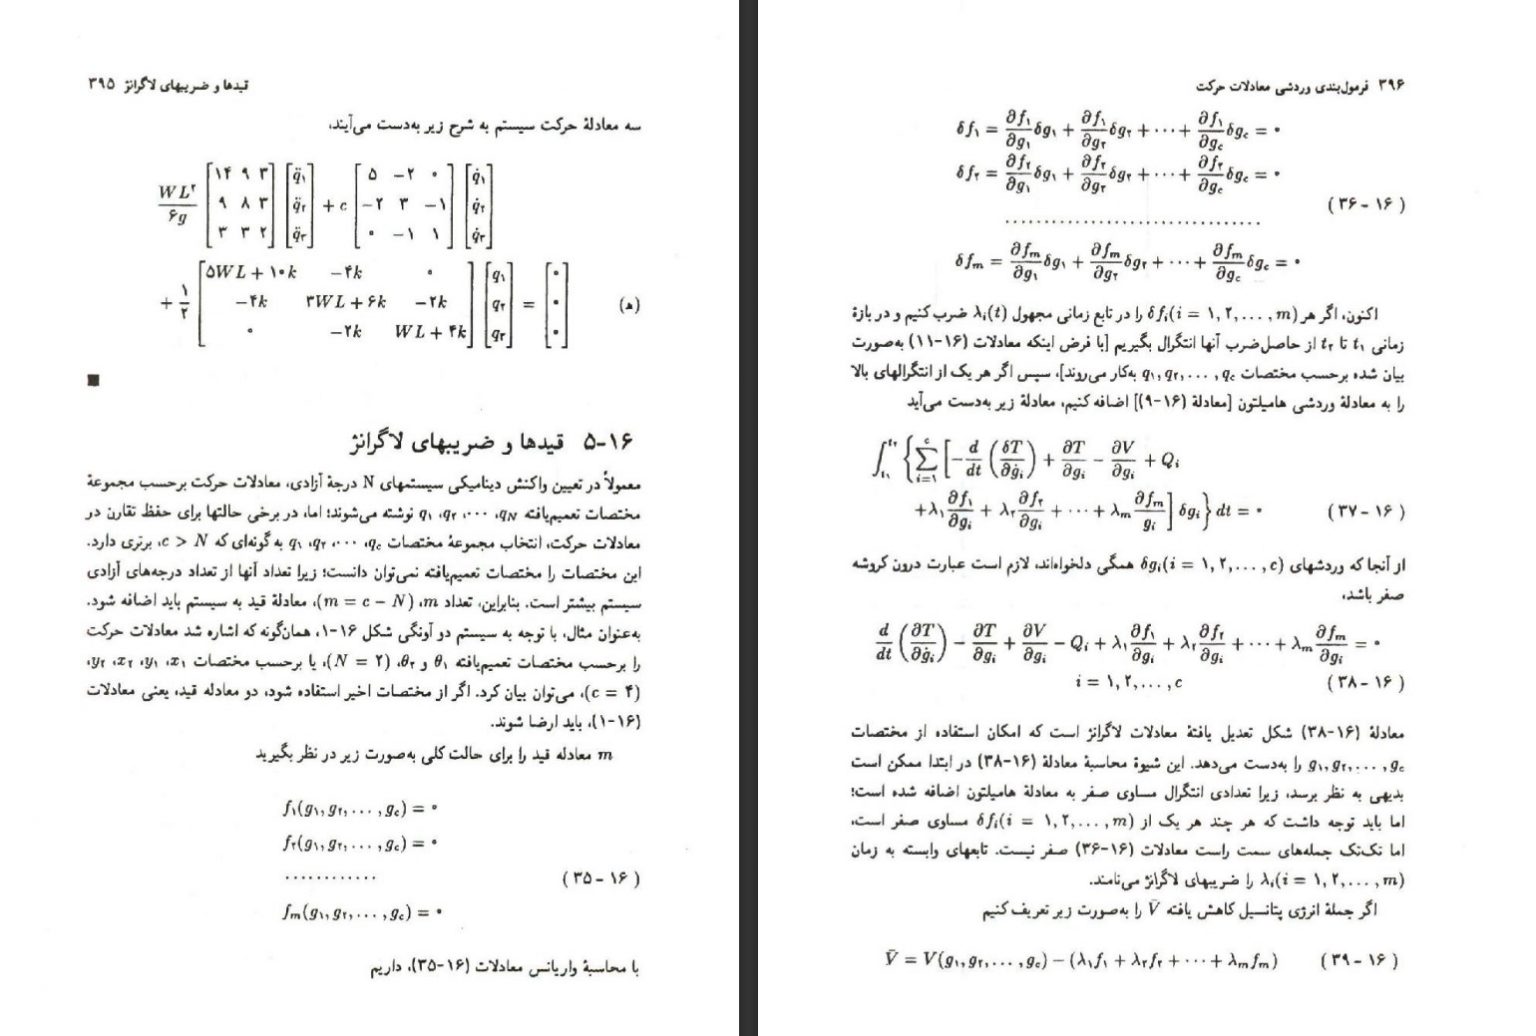 قیدها و ضریبهای لاگرانژ ۳۹۵
سه معادلهٔ حرکت سیستم به شرح زیر به‌دست می‌آیند،
WL۲/۶g [۱۴ ۹ ۳; ۹ ۸ ۳; ۳ ۳ ۲] [q̈۱; q̈۲; q̈۳] + c [۵ −۲ ۰; −۲ ۳ −۱; ۰ −۱ ۱] [q̇۱; q̇۲; q̇۳]
+ ۱/۲ [۵WL + ۱۰k −۴k ۰; −۴k ۳WL + ۶k −۲k; ۰ −۲k WL + ۴k] [q۱; q۲; q۳] = [۰; ۰; ۰] (ه)
■
۵-۱۶ قیدها و ضریبهای لاگرانژ
معمولاً در تعیین واکنش دینامیکی سیستمهای N درجهٔ آزادی، معادلات حرکت برحسب مجموعهٔ
مختصات تعمیم‌یافته q۱، q۲، ...، qN نوشته می‌شوند؛ اما، در برخی حالتها برای حفظ تقارن در
معادلات حرکت، انتخاب مجموعهٔ مختصات q۱، q۲، ...، qc به گونه‌ای که c > N، برتری دارد.
این مختصات را مختصات تعمیم‌یافته نمی‌توان دانست؛ زیرا تعداد آنها از تعداد درجه‌های آزادی
سیستم بیشتر است. بنابراین، تعداد m، (m = c − N)، معادلهٔ قید به سیستم باید اضافه شود.
به‌عنوان مثال، با توجه به سیستم دو آونگی شکل ۱۶-۱، همان‌گونه که اشاره شد معادلات حرکت
را برحسب مختصات تعمیم‌یافته θ۱ و θ۲، (N = ۲)، یا برحسب مختصات x۱، y۱، x۲، y۲،
(c = ۴)، می‌توان بیان کرد. اگر از مختصات اخیر استفاده شود، دو معادله قید، یعنی معادلات
(۱۶-۱)، باید ارضا شوند.
m معادله قید را برای حالت کلی به‌صورت زیر در نظر بگیرید
f۱(g۱, g۲, ..., gc) = ۰
f۲(g۱, g۲, ..., gc) = ۰
............ (۳۵-۱۶)
fm(g۱, g۲, ..., gc) = ۰
با محاسبهٔ واریانس معادلات (۱۶-۳۵)، داریم
۳۹۶ فرمول‌بندی وردشی معادلات حرکت
δf۱ = ∂f۱/∂g۱ δg۱ + ∂f۱/∂g۲ δg۲ + ··· + ∂f۱/∂gc δgc = ۰
δf۲ = ∂f۲/∂g۱ δg۱ + ∂f۲/∂g۲ δg۲ + ··· + ∂f۲/∂gc δgc = ۰
................................ (۳۶-۱۶)
δfm = ∂fm/∂g۱ δg۱ + ∂fm/∂g۲ δg۲ + ··· + ∂fm/∂gc δgc = ۰
اکنون، اگر هر δfi(i = ۱, ۲, ..., m) را در تابع زمانی مجهول λi(t) ضرب کنیم و در بازهٔ
زمانی t۱ تا t۲ از حاصل‌ضرب آنها انتگرال بگیریم [با فرض اینکه معادلات (۱۶-۱۱) به‌صورت
بیان شده برحسب مختصات q۱, q۲, ..., qc به‌کار می‌روند]، سپس اگر هر یک از انتگرالهای بالا
را به معادلهٔ وردشی هامیلتون [معادلهٔ (۱۶-۹)] اضافه کنیم، معادلهٔ زیر به‌دست می‌آید
∫t۱ t۲ { Σ i=۱ c [ −d/dt (δT/∂ġi) + ∂T/∂gi − ∂V/∂gi + Qi
+λ۱ ∂f۱/∂gi + λ۲ ∂f۲/∂gi + ··· + λm ∂fm/gi ] δgi } dt = ۰ (۳۷-۱۶)
از آنجا که وردشهای δgi(i = ۱, ۲, ..., c) همگی دلخواه‌اند، لازم است عبارت درون کروشه
صفر باشد،
d/dt (∂T/∂ġi) − ∂T/∂gi + ∂V/∂gi − Qi + λ۱ ∂f۱/∂gi + λ۲ ∂f۲/∂gi + ··· + λm ∂fm/∂gi = ۰
i = ۱, ۲, ..., c (۳۸-۱۶)
معادلهٔ (۱۶-۳۸) شکل تعدیل یافتهٔ معادلات لاگرانژ است که امکان استفاده از مختصات
g۱, g۲, ..., gc را به‌دست می‌دهد. این شیوهٔ محاسبهٔ معادلهٔ (۱۶-۳۸) در ابتدا ممکن است
بدیهی به نظر برسد، زیرا تعدادی انتگرال مساوی صفر به معادلهٔ هامیلتون اضافه شده است؛
اما باید توجه داشت که هر چند هر یک از δfi(i = ۱, ۲, ..., m) مساوی صفر است،
اما تک‌تک جمله‌های سمت راست معادلات (۱۶-۳۶) صفر نیست. تابعهای وابسته به زمان
λi(i = ۱, ۲, ..., m) را ضریبهای لاگرانژ می‌نامند.
اگر جملهٔ انرژی پتانسیل کاهش یافته V̄ را به‌صورت زیر تعریف کنیم
V̄ = V(g۱, g۲, ..., gc) − (λ۱f۱ + λ۲f۲ + ··· + λmfm) (۳۹-۱۶)